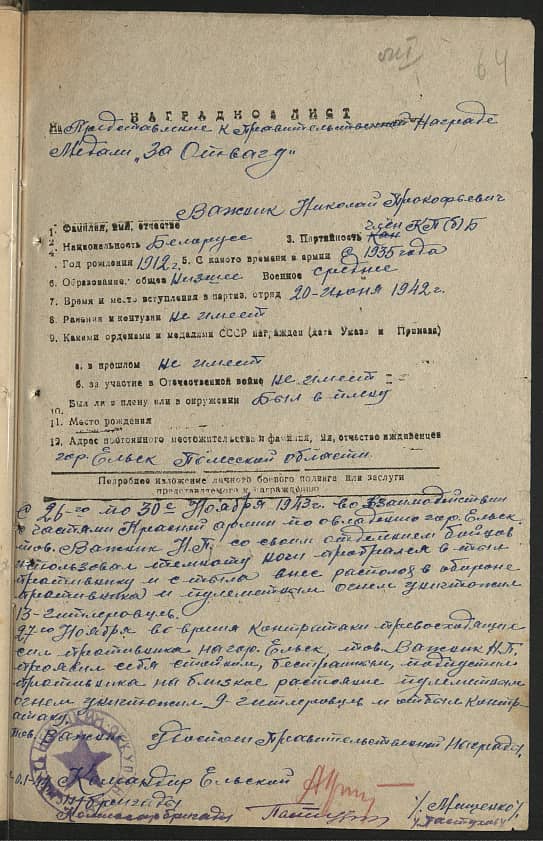 64
НАГРАДНОЙ ЛИСТ
На Представление к Правительственной Награде
Медали „За Отвагу"
1. Фамилия, имя, отчество Важник Николай Прокофьевич
2. Национальность Беларусс 3. Партийность член КП(б)Б
4. Год рождения 1912 г. 5. С какого времени в армии с 1935 года
6. Образование: общее Низшее Военное среднее
7. Время и место вступления в партиз. отряд 20-июня 1942 г.
8. Ранения и контузии не имеет
9. Какими орденами и медалями СССР награжден (дата Указа и Приказа)
а. в прошлом не имеет
б. за участие в Отечественной войне не имеет
10. Был ли в плену или в окружении Был в плену
11. Место рождения
12. Адрес постоянного местожительства и фамилия, имя, отчество иждивенцев
гор. Ельск Полесской области.
Подробное изложение личного боевого подвига или заслуги
представляемого к награждению
С 26-го по 30е Ноября 1943 г. во взаимодействии
с частями Красной армии по овладению гор. Ельск.
тов. Важник Н.П. со своим отделением бойцов
использовал темноту ночи пробрался в тыл
противнику и с тыла внес распалод в обороне
противника и пулеметным огнем уничтожил
13-гитлеровцев.
27го Ноября во время контратаки превосходящие
сил противника на гор. Ельск, тов. Важник Н.П.
проявил себя стойким, бесстрашным, подпустил
противника на близкое растояние пулеметным
огнем уничтожил 9-гитлеровцев и отбил контр-
атаку.
Тов. Важник удостоен Правительственной Награды.
Командир Ельской
бригады
Комиссар бригады
/Мищенко/
/Пастухов/